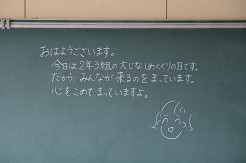 おはようございます。
今日は2年3組の大じなしめくくりの日です。
だから、みんなが来るのをまっています。
心をこめてまっていますよ。